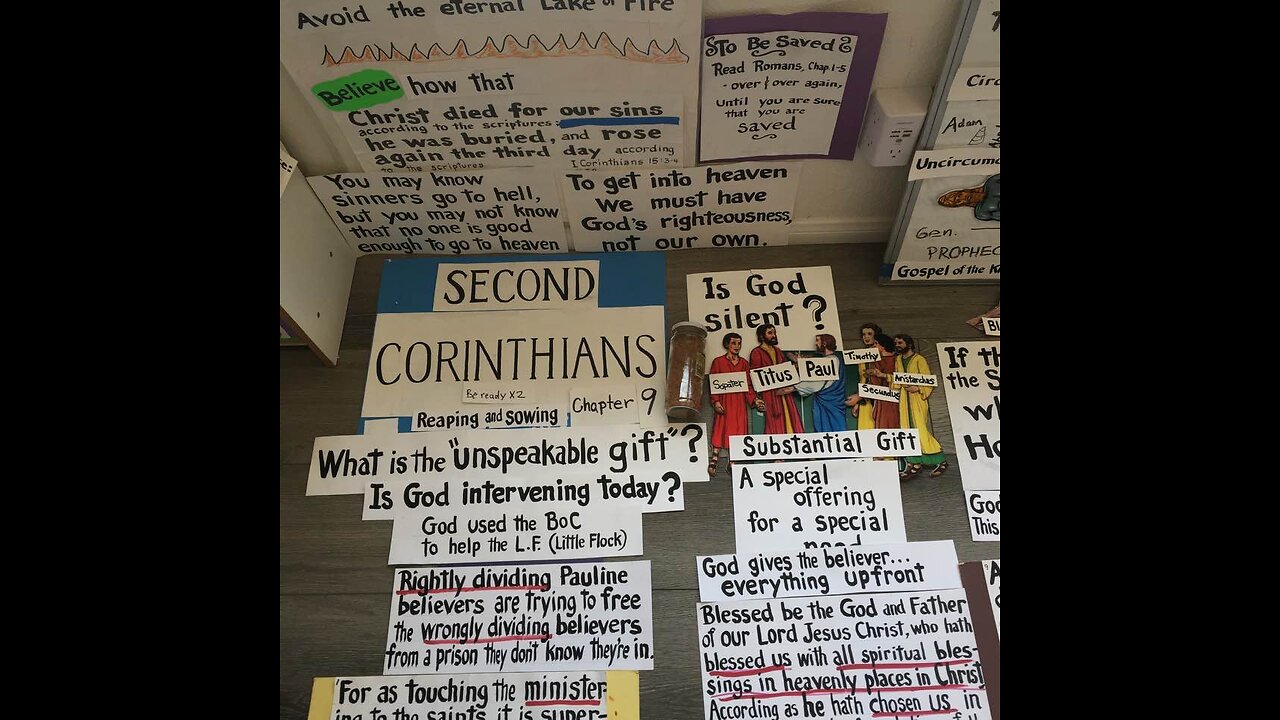 Avoid the eternal Lake of Fire
Believe how that
Christ died for our sins
according to the scriptures;
he was buried, and rose
again the third day according
to the scriptures
I Corinthians 15:3-4
To Be Saved
Read Romans, Chap. 1-5
- over & over again,
Until you are sure
that you are
saved
You may know
sinners go to hell,
but you may not know
that no one is good
enough to go to heaven
To get into heaven
We must have
God's righteousness,
not our own.
Adam
Uncircum
Gen.
PROPHEC
Gospel of the K
SECOND
CORINTHIANS
Be ready x2
Chapter 9
Reaping and sowing
What is the "unspeakable gift"?
Is God intervening today?
God used the BoC
to help the L.F. (Little Flock)
Rightly dividing Pauline
believers are trying to free
the wrongly dividing believers
from a prison they don't know they're in.
"For as touching the minister-
ing to the saints, it is super-
Is God
silent?
Sopater
Titus
Paul
Timothy
Secundus
Aristarchus
Substantial Gift
A special
offering
for a special
need
God gives the believer...
everything upfront
Blessed be the God and Father
of our Lord Jesus Christ, who hath
blessed us with all spiritual bles-
sings in heavenly places in Christ
According as he hath chosen us in
If th
the S
Ho
God
This